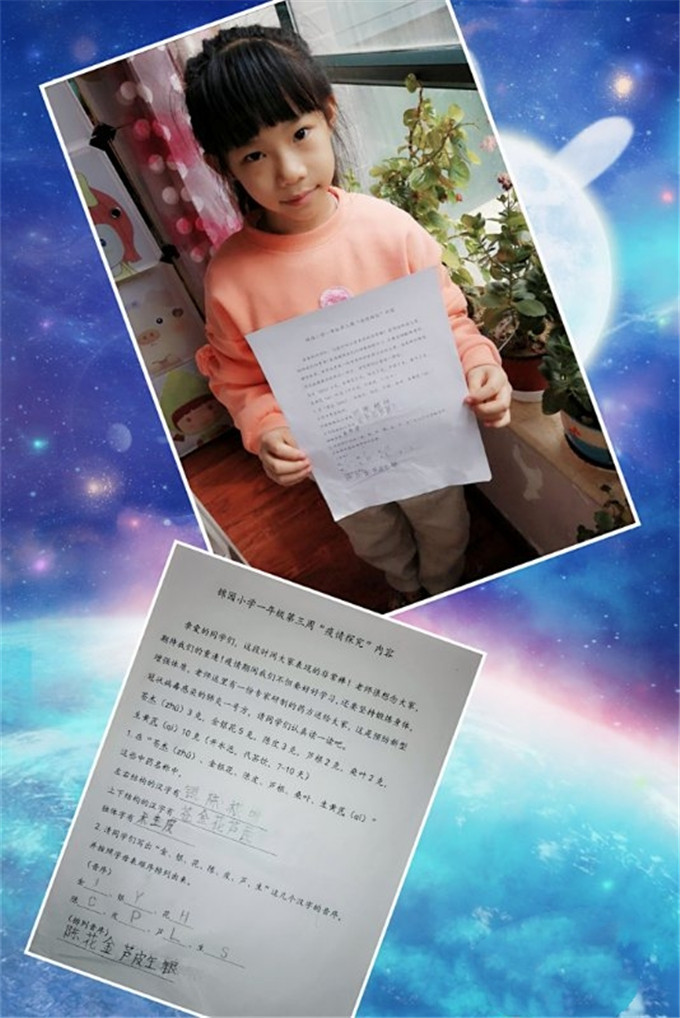 锦园小学一年级第三周“疫情探究”内容
亲爱的同学们，这段时间大家表现的非常棒！老师很想念大家，
期待我们的重逢！疫情期间我们不但要好好学习，还要坚持锻炼身体，
增强体质。老师这里有一份专家研制的药方送给大家，这是预防新型
冠状病毒感染的肺炎一号方，请同学们认真读一读吧。
苍术（zhú）3克，金银花5克，陈皮3克，芦根2克，桑叶2克，
生黄芪（qí）10克（开水泡，代茶饮，7-10天）
1.在“苍术（zhú）、金银花、陈皮、芦根、桑叶、生黄芪（qí）”
这些中药名称中，
左右结构的汉字有 银 陈 根 叶
上下结构的汉字有 苍金花芦芪
独体字有 术生皮
2.请同学们写出“金、银、花、陈、皮、芦、生”这几个汉字的音序，
并按照字母表顺序排列出来。
（音序）
金 J ，银 Y ，花 H
陈 C ，皮 P ，芦 L ，生 S
（排列音序）
陈 花 金 芦皮生 银